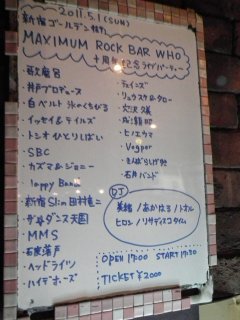 2011.5.1 (SUN)
新宿ゴールデン街
MAXIMUM ROCK BAR WHO
十周年記念ライブパーティー
歌磨呂
井戸プロデュース
白ベルト 氷のくちびる
イッセイ&テイルズ
トシオひとりしばい
SBC
カズマ&ジョニー
Happy Band
新宿Slim田村竜二
ザ・ダンス天国
MMS
石炭落戸
ヘッドライツ
ハイテホーズ
ティインズ
リュウスケ&タロー
ヒノエウマ
Vagpor
きんぱらしげ
石井バンド
DJ
美緒/あかはる/トオル
ヒロシ/リサディスコタイム
OPEN 17:00 START 17:30
TICKET ¥2000